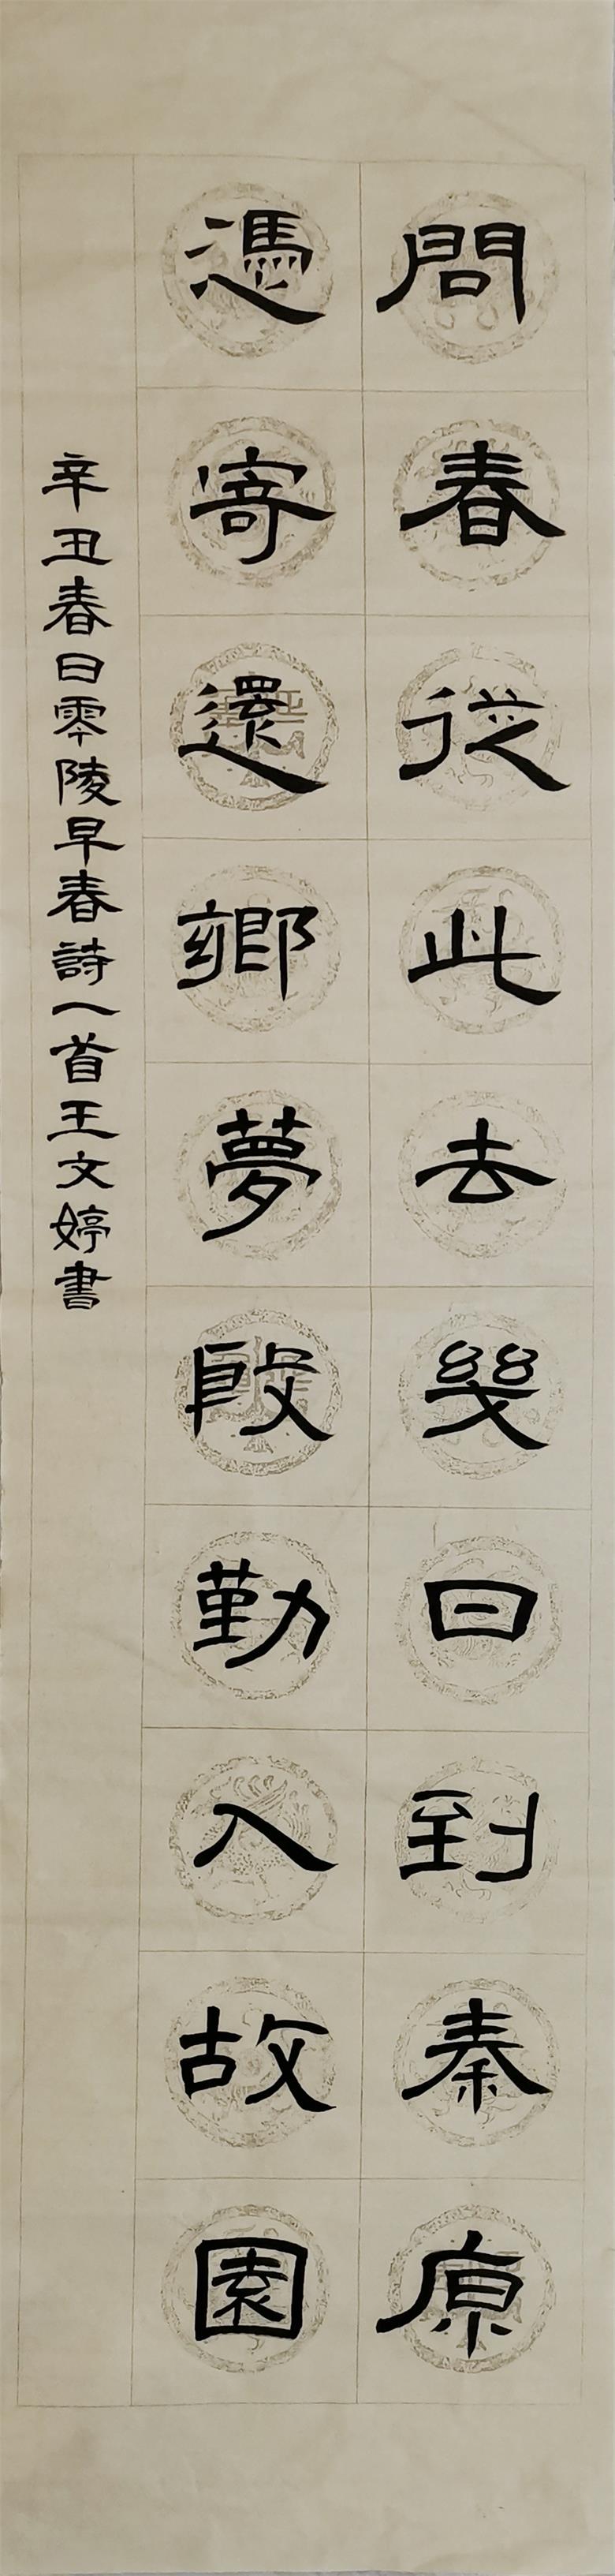 問春從此去幾日到秦原
憑寄還鄉夢殷勤入故園
辛丑春日零陵早春詩一首王文婷書